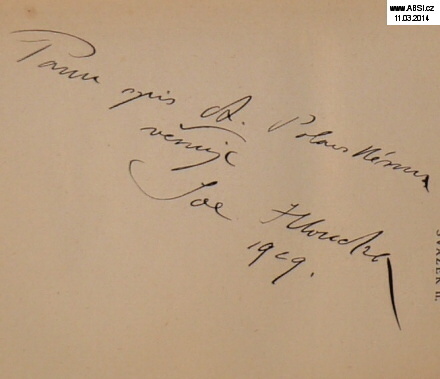 www.ABSi.cz
11.03.2014
Panu spis. A. Polanskému
věnuje
Joe Hloucha
1919.
SVAZEK II.